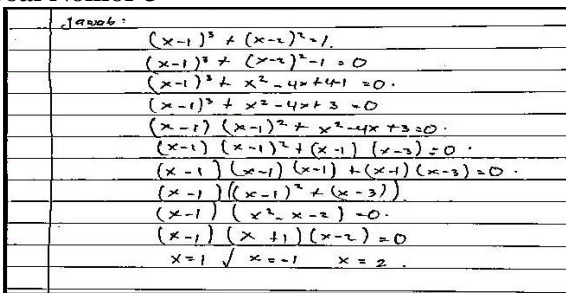 Jawab :
(x-1)³ + (x-2)² = 1.
(x-1)³ + (x-2)² - 1 = 0
(x-1)³ + x² - 4x + 4 - 1 = 0.
(x-1)³ + x² - 4x + 3 = 0
(x-1) (x-1)² + x² - 4x + 3 = 0.
(x-1) (x-1)² + (x-1) (x-3) = 0.
(x-1) (x-1) (x-1) + (x-1) (x-3) = 0.
(x-1) ((x-1)² + (x-3))
(x-1) (x² - x - 2) = 0.
(x-1) (x+1) (x-2) = 0
x = 1 √ x = -1 x = 2.